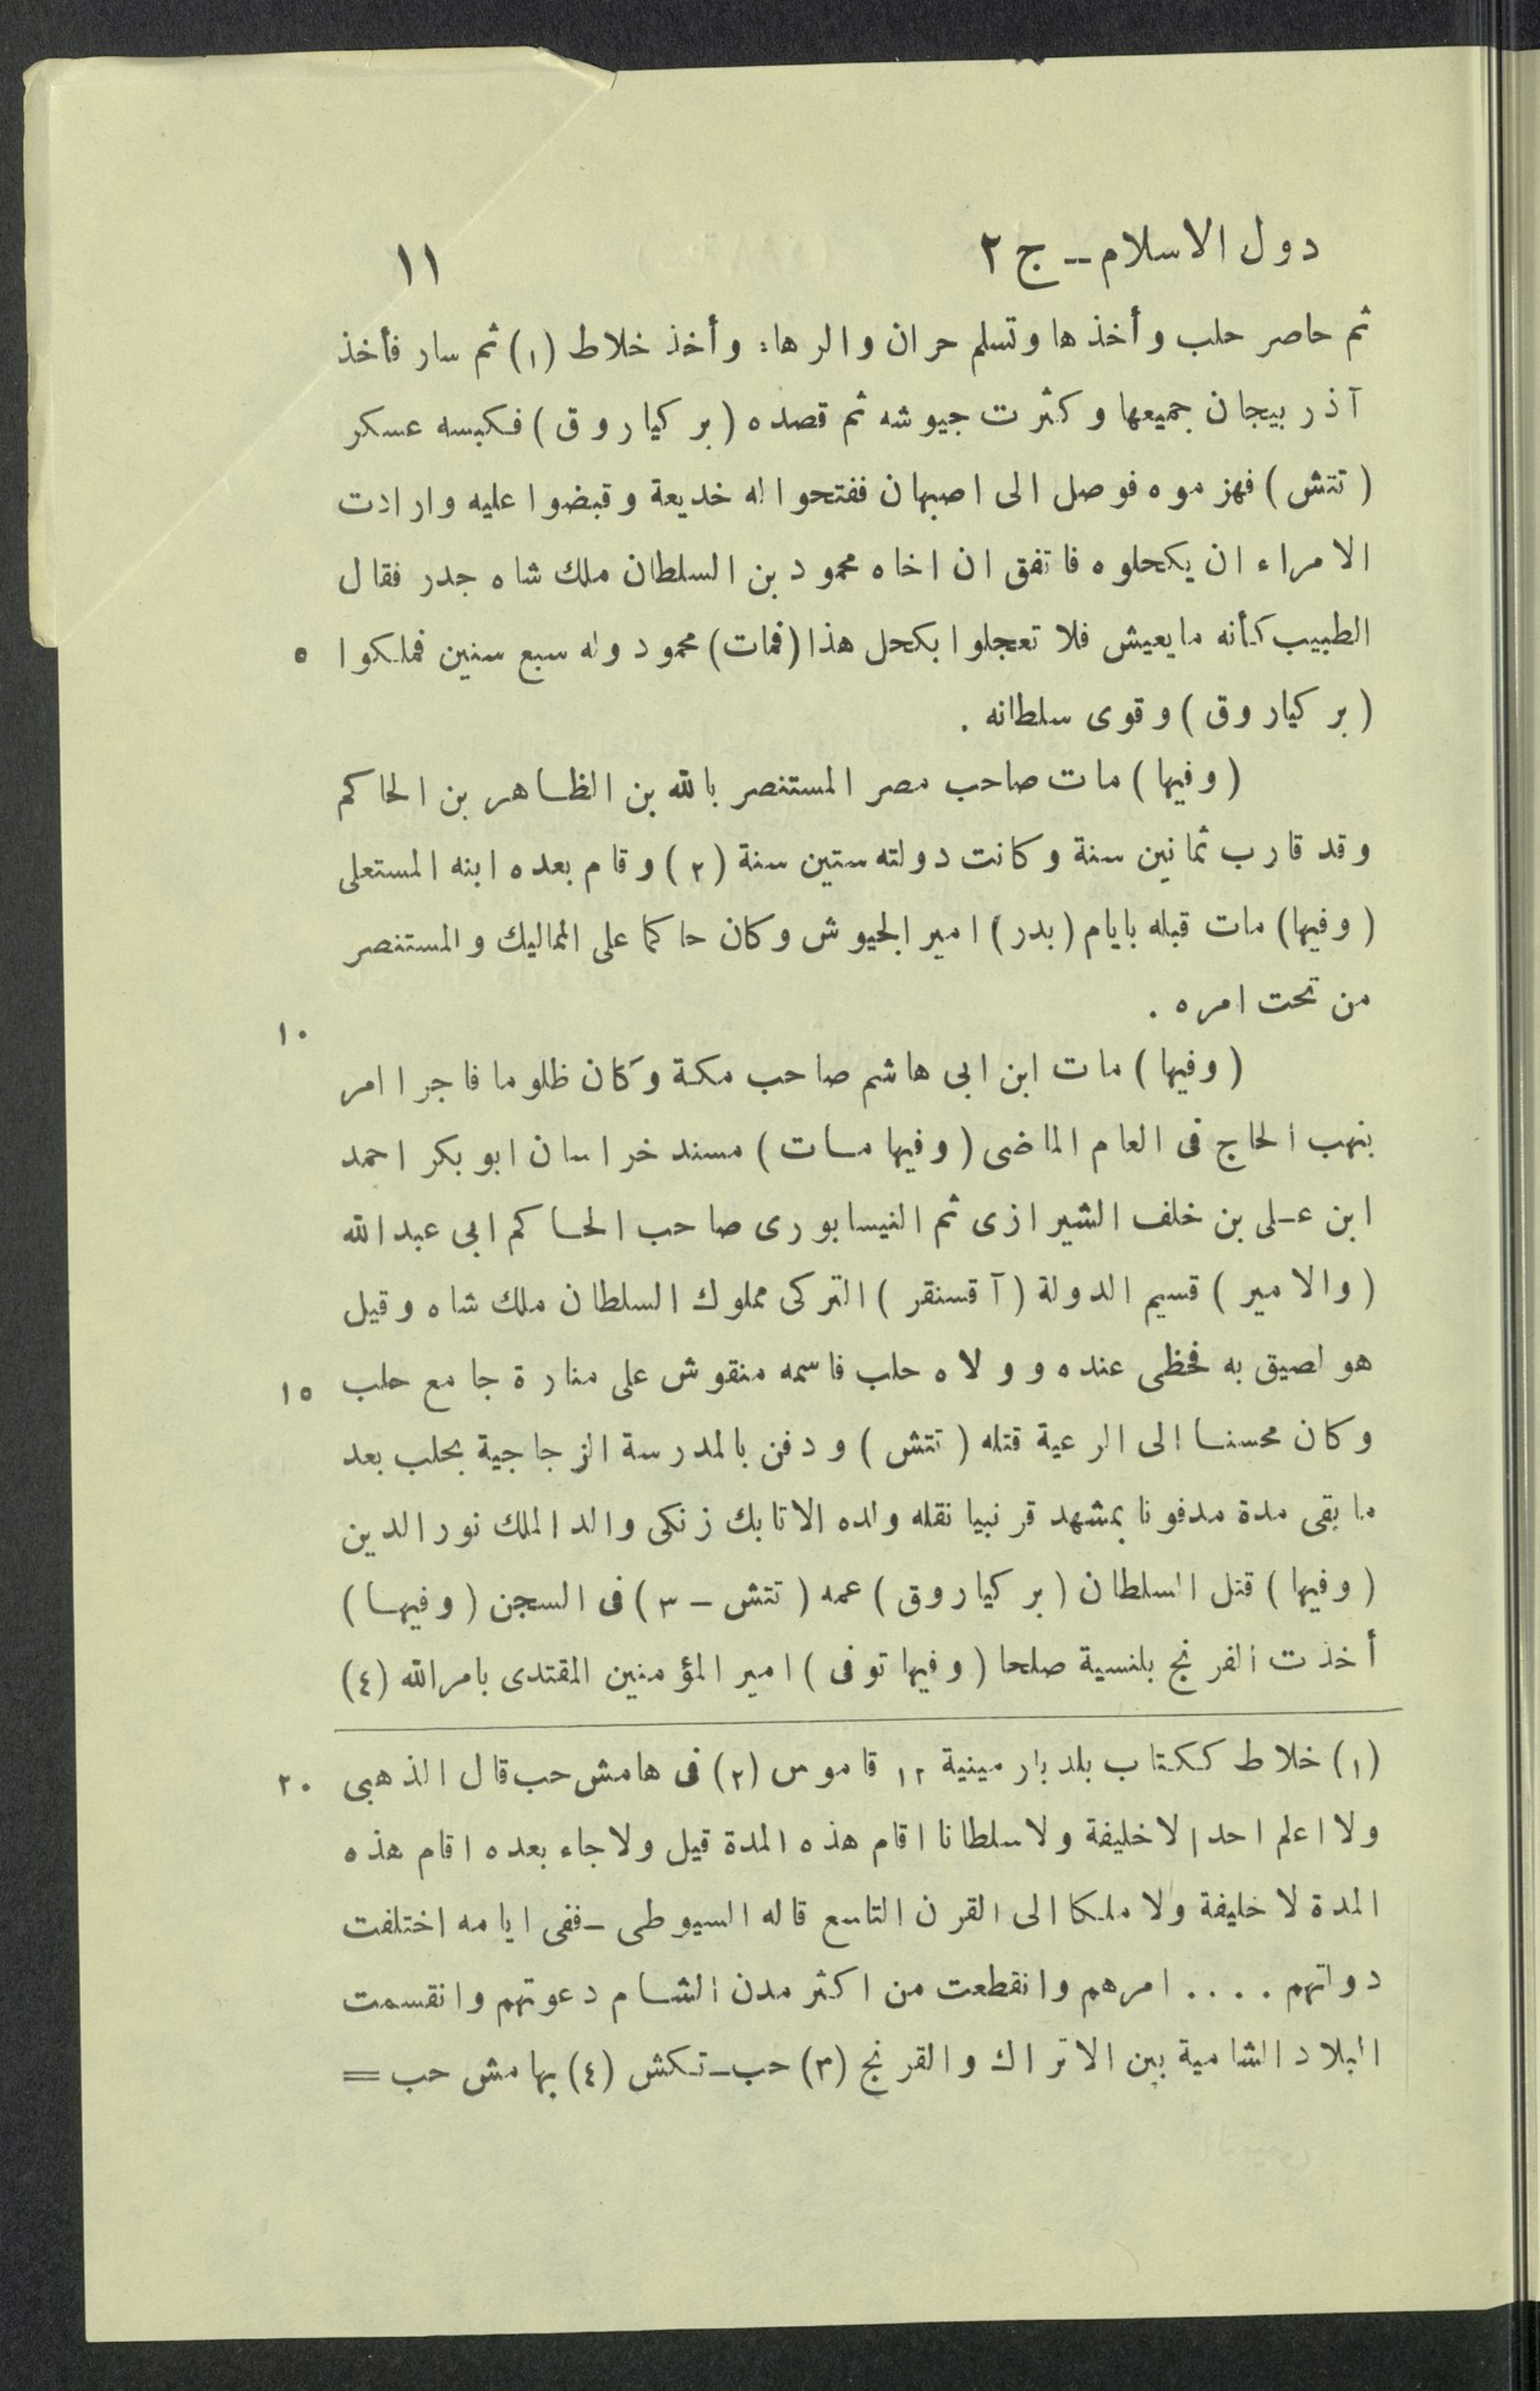 دول الاسلام ــ ج ٢ ١١
ثم حاصر حلب وأخذها وتسلم حران والرها: وأخذ خلاط (١) ثم سار فأخذ
آذربيجان جميعها وكثرت جيوشه ثم قصده (بركياروق) فكبسه عسكر
(تتش) فهزموه فوصل الى اصبهان ففتحوا له خديعة وقبضوا عليه وارادت
الامراء ان يكحلوه فاتفق ان اخاه محمود بن السلطان ملك شاه جدر فقال
الطبيب كأنه مايعيش فلا تعجلوا بكحل هذا (فمات) محمود وله سبع سنين فملكوا ٥
(بركياروق) وقوى سلطانه .
(وفيها) مات صاحب مصر المستنصر بالله بن الظاهر بن الحاكم
وقد قارب ثمانين سنة وكانت دولته ستين سنة (٢) وقام بعده ابنه المستعلى
(وفيها) مات قبله بايام (بدر) امير الجيوش وكان حاكما على المماليك والمستنصر
من تحت امره . ١٠
(وفيها) مات ابن ابى هاشم صاحب مكة وكان ظلوما فاجرا امر
بنهب الحاج فى العام الماضى (وفيها مات) مسند خراسان ابو بكر احمد
ابن عـلى بن خلف الشيرازى ثم النيسابورى صاحب الحاكم ابى عبدالله
(والامير) قسيم الدولة (آقسنقر) التركى مملوك السلطان ملك شاه وقيل
هو لصيق به فحظى عنده وولاه حلب فاسمه منقوش على منارة جامع حلب ١٥
وكان محسنا الى الرعية قتله (تتش) ودفن بالمدرسة الزجاجية بحلب بعد
ما بقى مدة مدفونا بمشهد قرنبيا نقله ولده الاتابك زنكى والد الملك نور الدين
(وفيها) قتل السلطان (بركياروق) عمه (تتش ــ ٣) فى السجن (وفيها)
أخذت الفرنج بلنسية صلحا (وفيها توفى) امير المؤمنين المقتدى بامرالله (٤)
(١) خلاط ككتاب بلد بارمينية ١٢ قاموس (٢) فى هامش حب قال الذهبى ٢٠
ولا اعلم احدا لا خليفة ولا سلطانا اقام هذه المدة قيل ولا جاء بعده اقام هذه
المدة لا خليفة ولا ملكا الى القرن التاسع قاله السيوطى ــ ففى ايامه اختلفت
دولتهم .... امرهم وانقطعت من اكثر مدن الشام دعوتهم وانقسمت
البلاد الشامية بين الاتراك والفرنج (٣) حب ــ تكش (٤) بهامش حب =